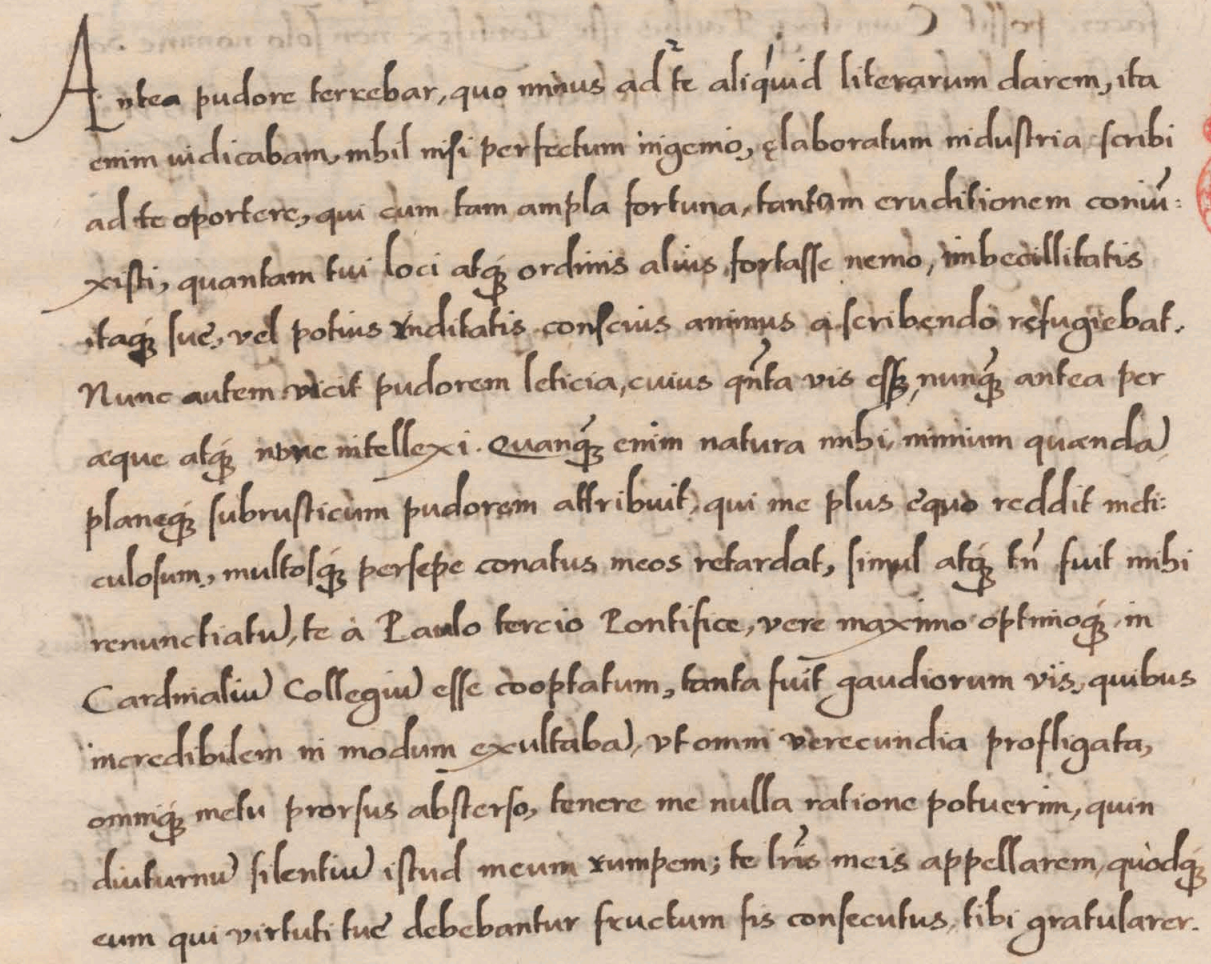 Antea pudore terrebar, quo minus ad te aliquid literarum darem, ita
enim iudicabam, nihil nisi perfectum ingenio, ęlaboratum industria scribi
ad te oportere, qui cum tam ampla fortuna, tantam eruditionem coniū:
xisti, quantam tui loci atq́ꝫ ordinis alius fortasse nemo, imbecillitatis
itaq́ꝫ suę, vel potius ruditatis conscius animus a scribendo refugiebat.
Nunc autem vicit pudorem leticia, cuius qñta vis essꝫ, nunq̃ꝫ antea per
aeque atq́ꝫ nunc intellexi. Quanq́ꝫ enim natura mihi, nimium quendā
planeq́ꝫ subrusticum pudorem attribuit, qui me plus ęquo reddit meti:
culosum, multosq́ꝫ persepe conatus meos retardat, simul atq́ꝫ tñ fuit mihi
renunctiatū, te à Paulo tercio Pontifice, vere maximo optimoq́ꝫ in
Cardinaliū Collegiū esse cooptatum, tanta fuit gaudiorum vis, quibus
incredibilem in modum exultabā, vt omni verecundia profligata,
omniq́ꝫ metu prorsus absterso, tenere me nulla ratione potuerim, quin
diuturnū silentiū istud meum rumpem; te lr̃is meis appellarem, quodq́ꝫ
eum qui virtuti tuę debebantur fructum sis consecutus, tibi gratularer.